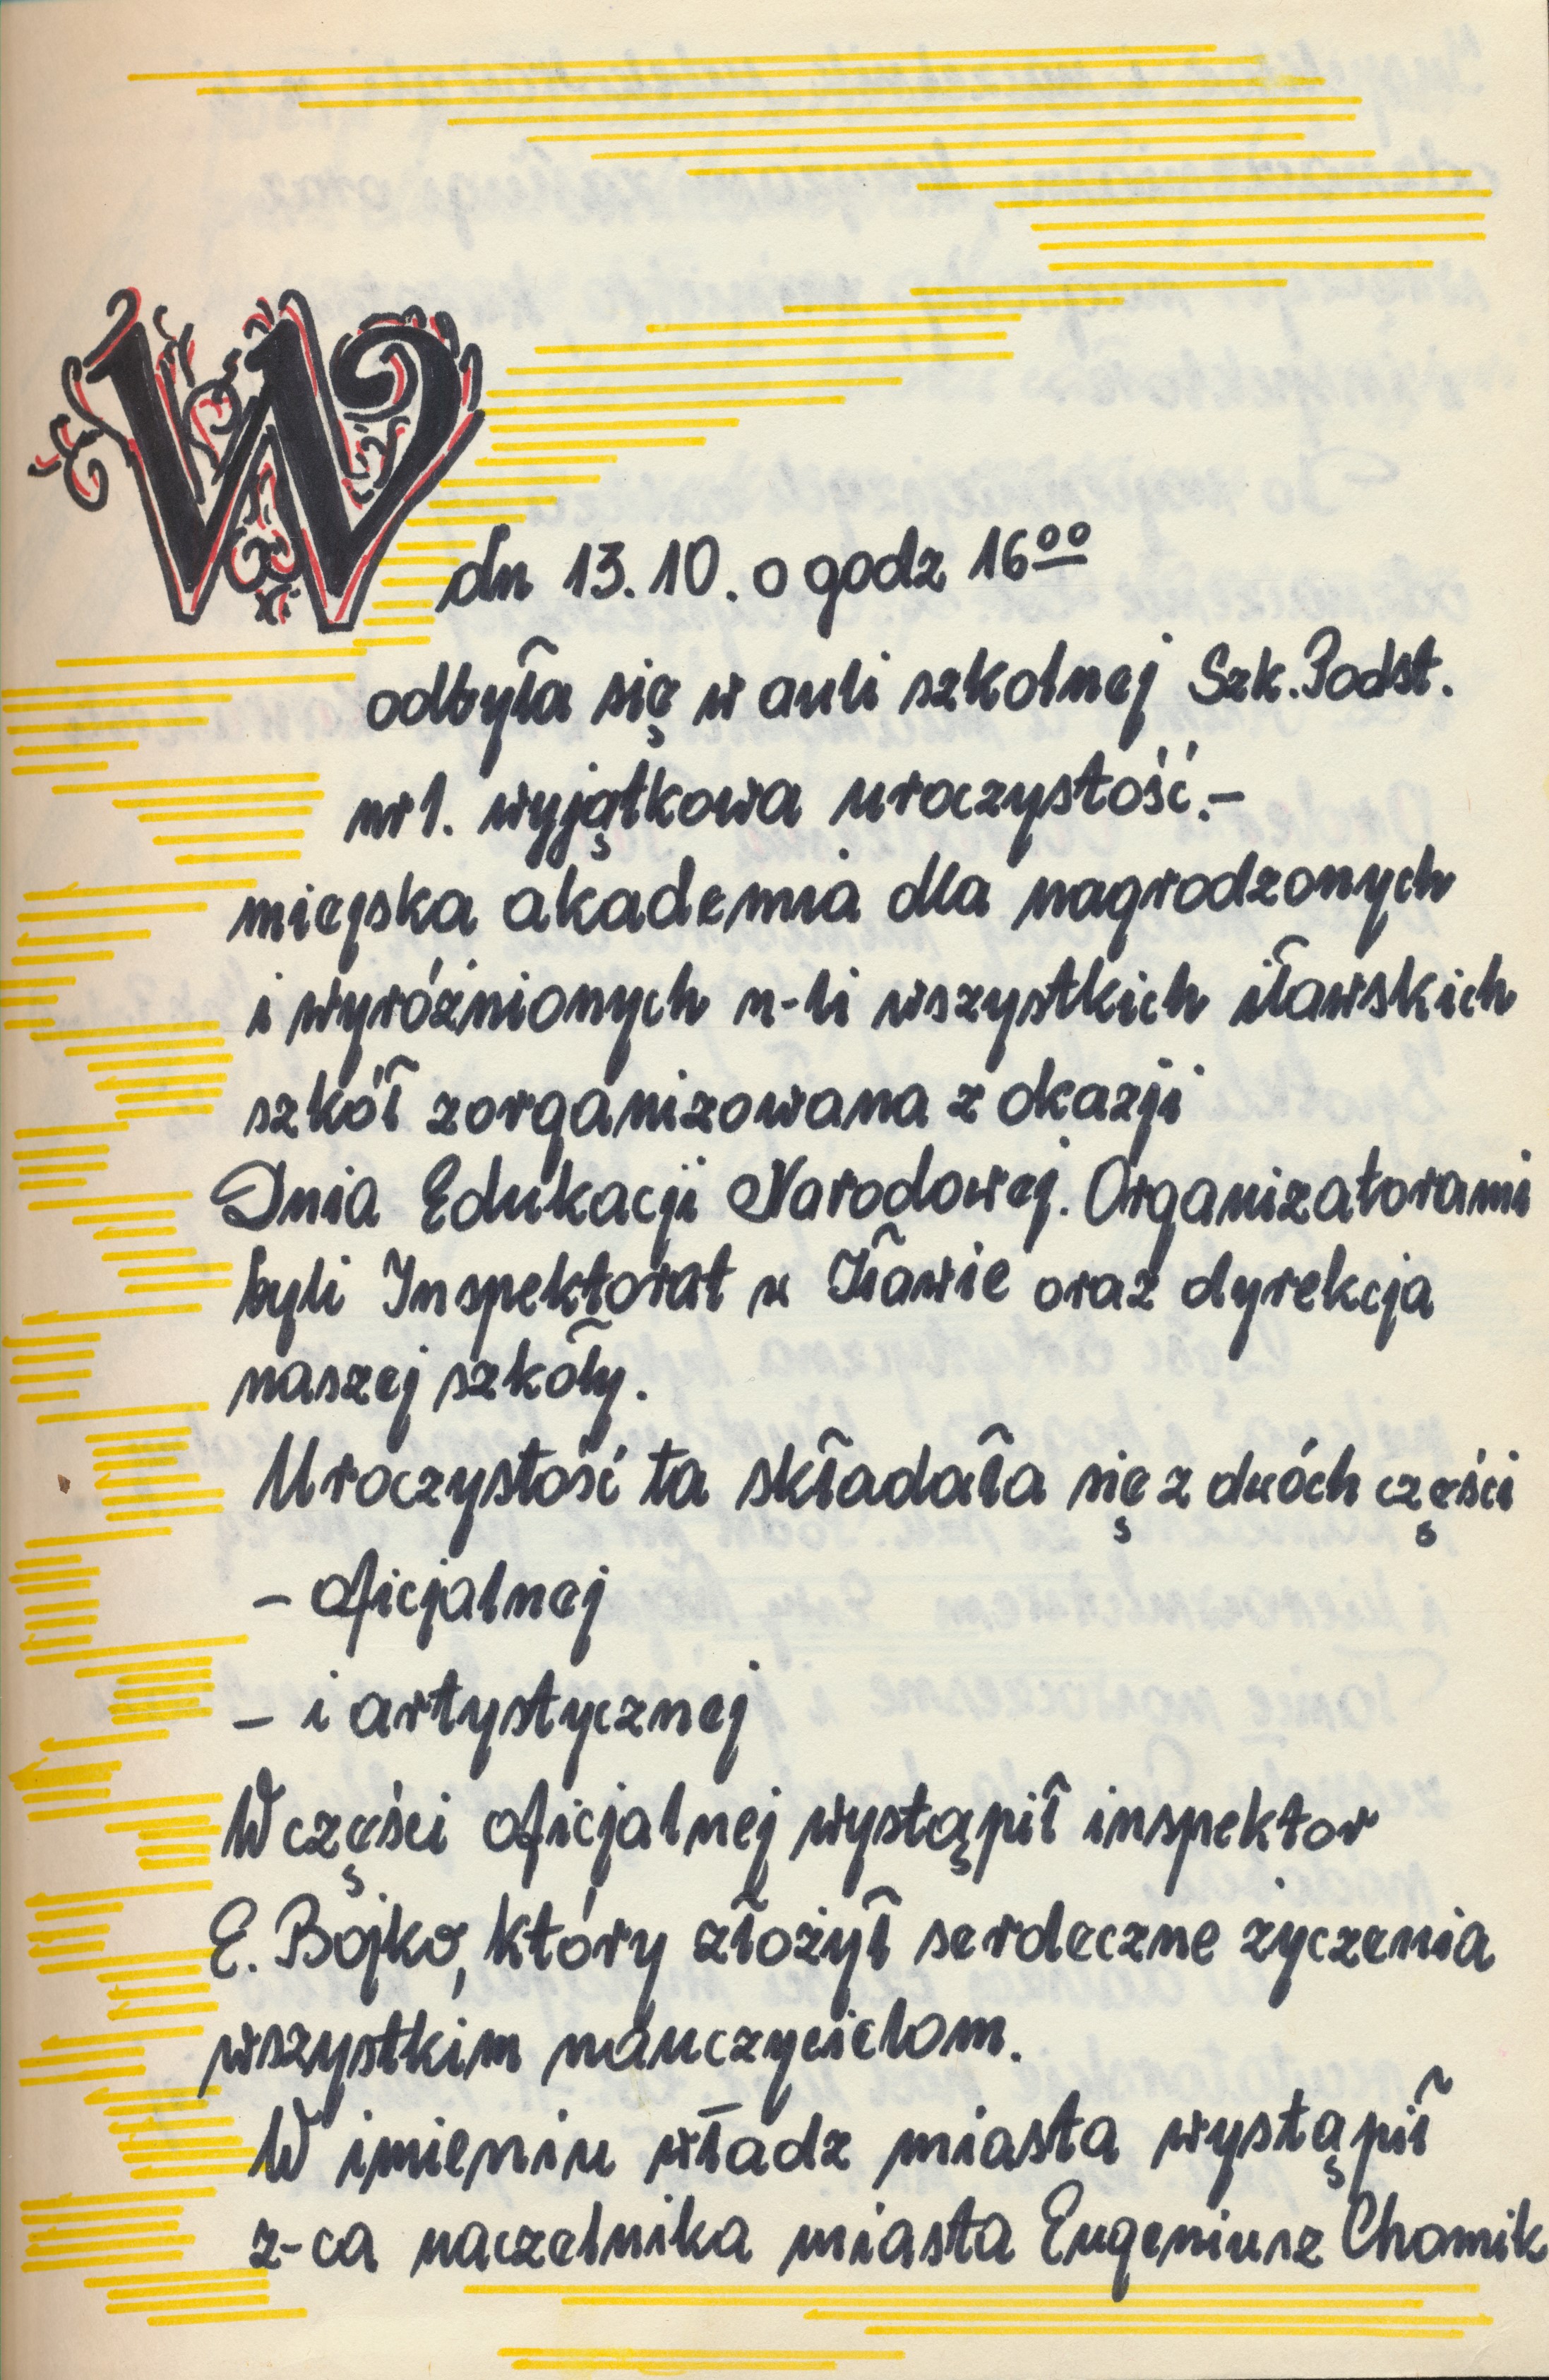 W dn 13.10. o godz 16⁰⁰
odbyła się w auli szkolnej Szk. Podst.
nr 1. wyjątkowa uroczystość.-
miejska akademia dla nagrodzonych
i wyróżnionych n-li wszystkich iławskich
szkół zorganizowana z okazji
Dnia Edukacji Narodowej. Organizatorami
byli Inspektorat w Iławie oraz dyrekcja
naszej szkoły.
Uroczystość ta składała się z dwóch części
- oficjalnej
- i artystycznej
W części oficjalnej wystąpił inspektor
E. Bojko, który złożył serdeczne życzenia
wszystkim nauczycielom.
W imieniu władz miasta wystąpił
z-ca naczelnika miasta Eugeniusz Chomik